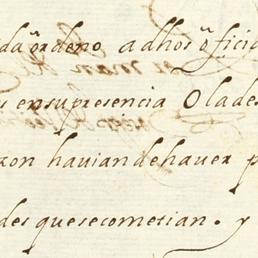 da orden o a dhos offici
s en su presencia O la des
zon havian de haver p
des que se cometian. y